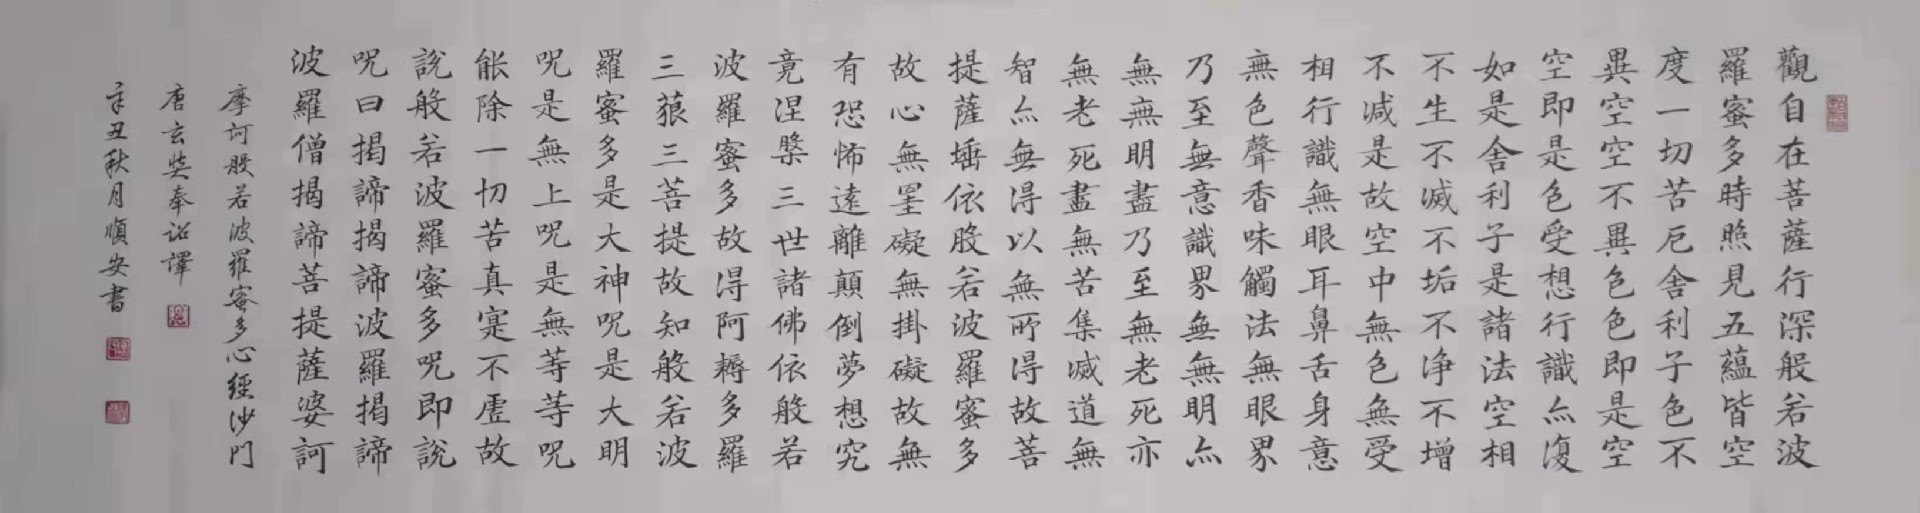 觀自在菩薩行深般若波
羅蜜多時照見五蘊皆空
度一切苦厄舍利子色不
異空空不異色色即是空
空即是色受想行識亦復
如是舍利子是諸法空相
不生不滅不垢不净不增
不减是故空中無色無受
想行識無眼耳鼻舌身意
無色聲香味觸法無眼界
乃至無意識界無無明亦
無無明盡乃至無老死亦
無老死盡無苦集滅道無
智亦無得以無所得故菩
提薩埵依般若波羅蜜多
故心無罣礙無掛礙故無
有恐怖遠離顛倒夢想究
竟涅槃三世諸佛依般若
波羅蜜多故得阿耨多羅
三藐三菩提故知般若波
羅蜜多是大神呪是大明
呪是無上呪是無等等呪
能除一切苦真寔不虛故
說般若波羅蜜多呪即說
呪曰揭諦揭諦波羅揭諦
波羅僧揭諦菩提薩婆訶
摩訶般若波羅蜜多心經沙門
唐玄奘奉詔譯
辛丑秋月順安書